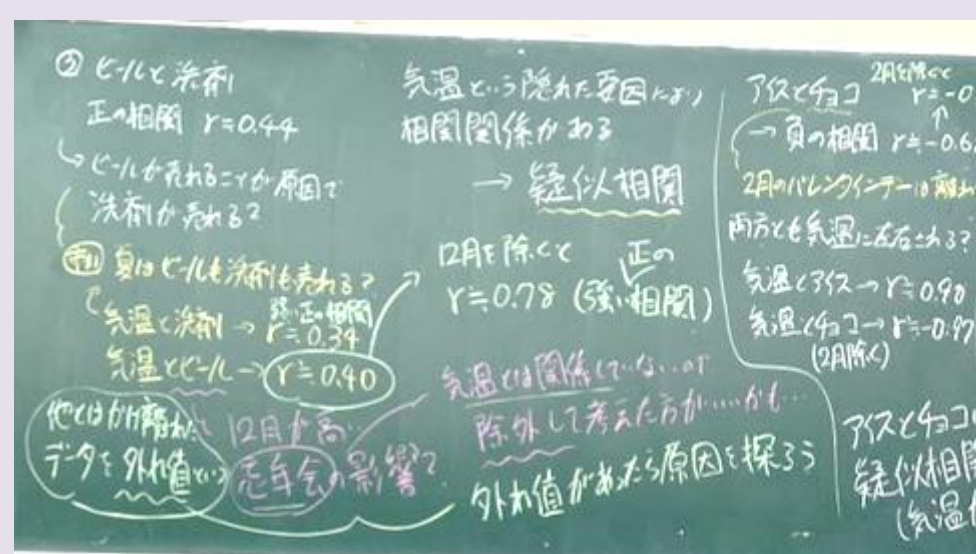 ② ビールと洗剤
正の相関 r=0.44
↳ビールが売れることが原因で
洗剤が売れる?
夏はビールも洗剤も売れる?
気温と洗剤 → r≒0.34
弱い正の相関
気温とビール→ r≒0.40
他とはかけ離れた
データを外れ値という
12月が高い
忘年会の影響で
気温という隠れた要因により
相関関係がある
→ 疑似相関
12月を除くと
r≒0.78 (強い正の相関)
気温とは関係していないので
除外して考えた方が……かも…
外れ値があったら原因を探ろう
アイスとチョコ
2月を除くと
r≒-0
→ 負の相関 r≒-0.6
2月のバレンタインデーは
両方とも気温に左右される?
気温とアイス→ r≒0.90
気温とチョコ→ r≒-0.97
(2月除く)
アイスとチョコ
疑似相関
(気温